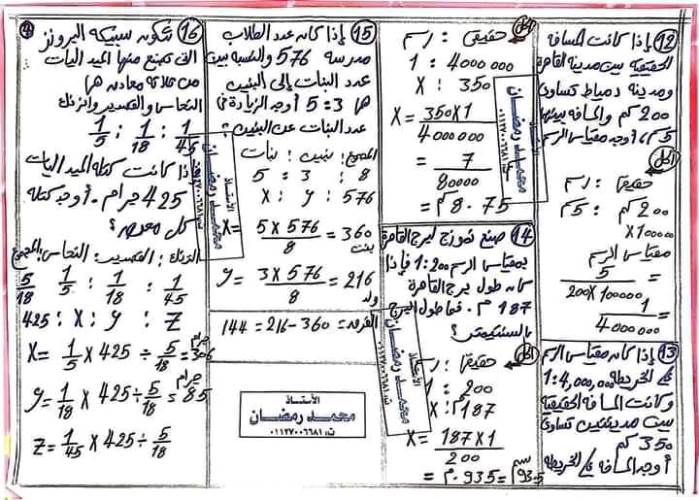 12 إذا كانت المسافة
الحقيقية بين مدينة القاهرة
ومدينة دمياط تساوى
200 كم والمسافة بينها
5 سم، أوجد مقياس الرسم
الحل
حقيقى : رسم
200 كم : 5 سم
100000 X
مقياس الرسم
= 5 / 200 X 100000
= 1 / 4000000
13 إذا كان مقياس الرسم
فى الخريطة 1:4,000,000
وكانت المسافة الحقيقية
بين مدينتين تساوى
350 كم
أوجد المسافة فى الخريطة
الحل
حقيقى : رسم
1 : 4000000
X : 350
X = 350 X 1 / 4000000
= 7 / 80000
= 8.75 سم
14 صنع نموزج لبرج القاهرة
بمقياس الرسم 1:200 فإذا
كان طول برج القاهرة
187 م. فما طول البرج
بالسنتيمتر؟
الحل
حقيقى : رسم
1 : 200
X : 187م
X = 187 X 1 / 200
= 0.935 م = 93.5 سم
15 إذا كان عدد الطلاب
مدرسة 576 والنسبة بين
عدد البنات إلى البنين
هى 3:5 أوجد الزيادة فى
عدد البنات عن البنين
المجموع : بنين : بنات
8 : 3 : 5
576 : y : X
X = 5 X 576 / 8 = 360
بنت
y = 3 X 576 / 8 = 216
ولد
الفرق = 360 - 216 = 144
الأستاذ
محمد رمضان
ت: ٠١١٢٧٠٠٦٦٨١
4
16 تتكون سبيكة البرونز
التى تصنع منها الميداليات
من ثلاثة معادن هى
النحاس والقصدير والزنك
1/5 : 1/18 : 1/45
إذا كانت كتلة الميداليات
425 جرام. أوجد كتلة
كل معدن؟
الزنك : القصدير : النحاس : المجموع
5/18 : 1/5 : 1/18 : 1/45
425 : X : y : Z
X = 1/5 X 425 ÷ 5/18 = 306 جرام
y = 1/18 X 425 ÷ 5/18 = 85 جرام
Z = 1/45 X 425 ÷ 5/18
الأستاذ
محمد رمضان
ت: ٠١١٢٧٠٠٦٦٨١
الأستاذ
محمد رمضان
ت: ٠١١٢٧٠٠٦٦٨١
الأستاذ
محمد رمضان
ت: ٠١١٢٧٠٠٦٦٨١